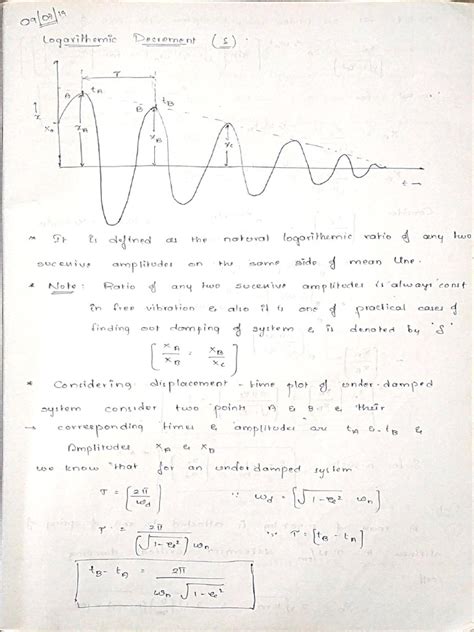 09/09/19
Logarithemic Decrement (δ).
T
A
tA
B
tB
x
x₀
xA
xB
xc
t →
* It is defined as the natural logarithemic ratio of any two
succesive amplitudes on the same side of mean line.
* Note: Ratio of any two succesive amplitudes is always const
in free vibration & also it is one of practical cases of
finding out damping of system & is denoted by 'δ'
[xA/xB = xB/xc]
* Considering displacement-time plot of under-damped
system consider two point A & B & their
→ corresponding times & amplitudes are tA & tB &
Amplitudes xA & xB
we know that for an underdamped system
T = [2π/ωd] ∵ ωd = [√1-ξ² ωn]
T = 2π/(√1-ξ²) ωn ∵ T = [tB - tA]
tB - tA = 2π/ωn √1-ξ²